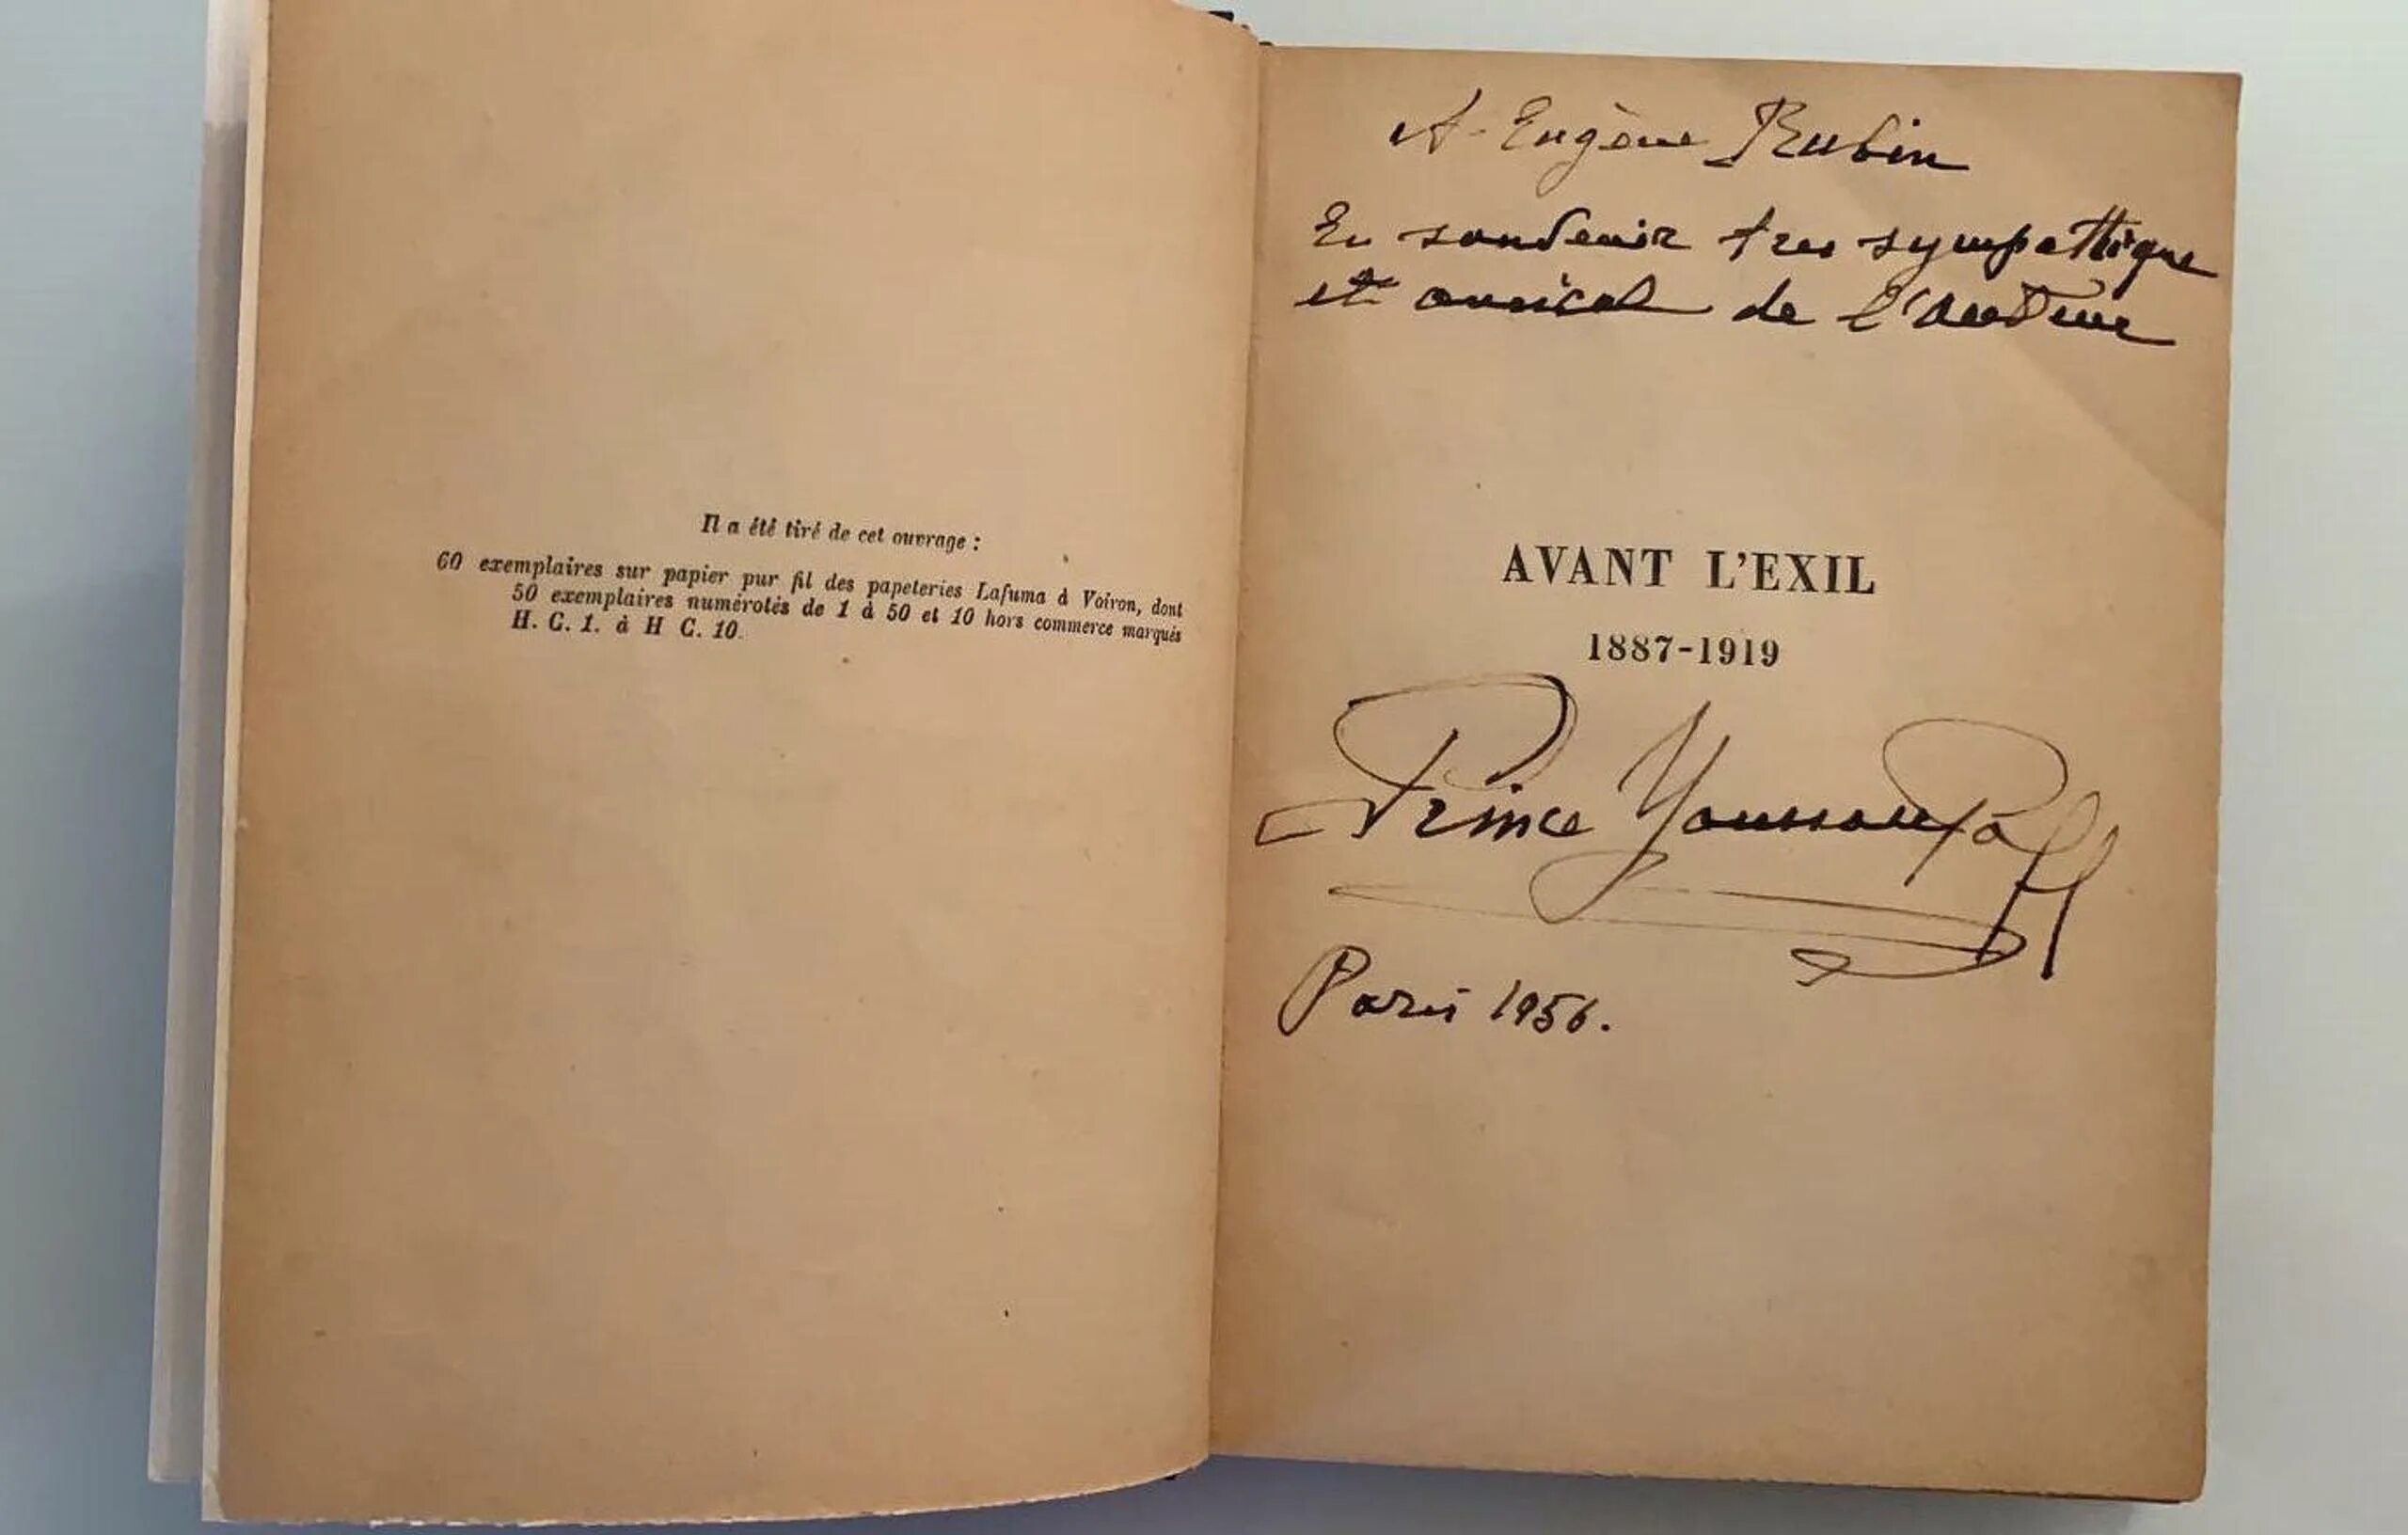 Il a été tiré de cet ouvrage :
60 exemplaires sur papier pur fil des papeteries Lafuma à Voiron, dont
50 exemplaires numérotés de 1 à 50 et 10 hors commerce marqués
H. C. 1. à H C. 10.
A Eugène Rubin
En souvenir tres sympathique
et amical de l'auteur
AVANT L'EXIL
1887-1919
Prince Youssoupoff
Paris 1956.